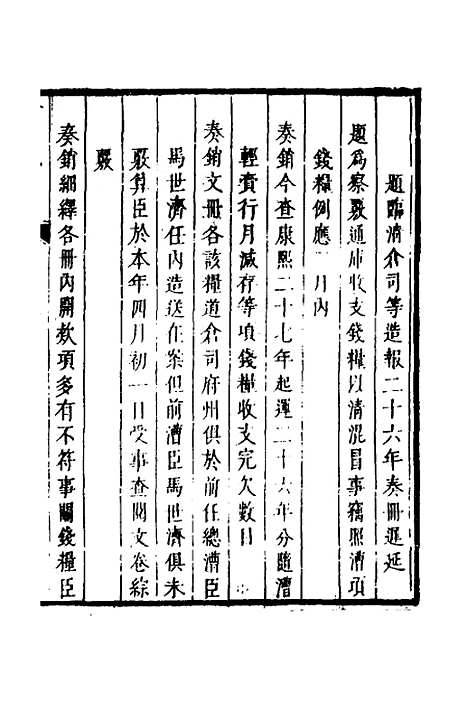 題臨清倉司等造報二十六年奏冊遲延
題爲察覈通庫收支錢糧以清混冒事竊照漕項
錢糧例應 月內
奏銷今查康熙二十七年起運二十六年分隨漕
輕賫行月減存等項錢糧收支完欠數目
奏銷文冊各該糧道倉司府州俱於前任總漕臣
馬世濟任內造送在案但前漕臣馬世濟俱未
覈算臣於本年四月初一日受事查閱文卷綜
覈
奏銷細繹各冊內開欵項多有不符事關錢糧臣